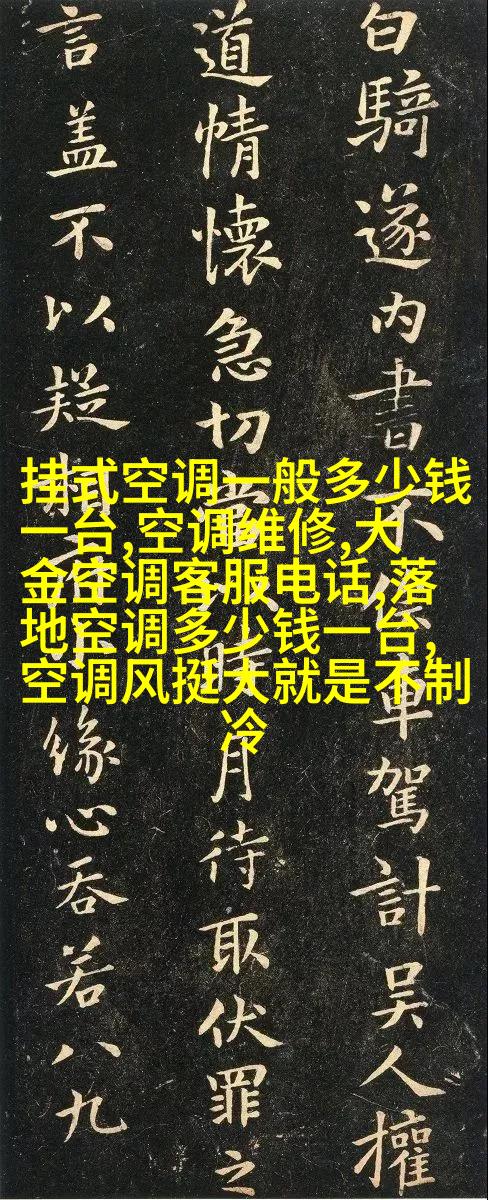 白騎遂内書不車駕計吴人權
道情懷急切時月待取伏罪之
言盖不以疑緣心吞若八九
挂式空调一般多少钱
一台,空调维修,大
金空调客服电话,落
地空调多少钱一台,
空调风挺大就是不制
冷